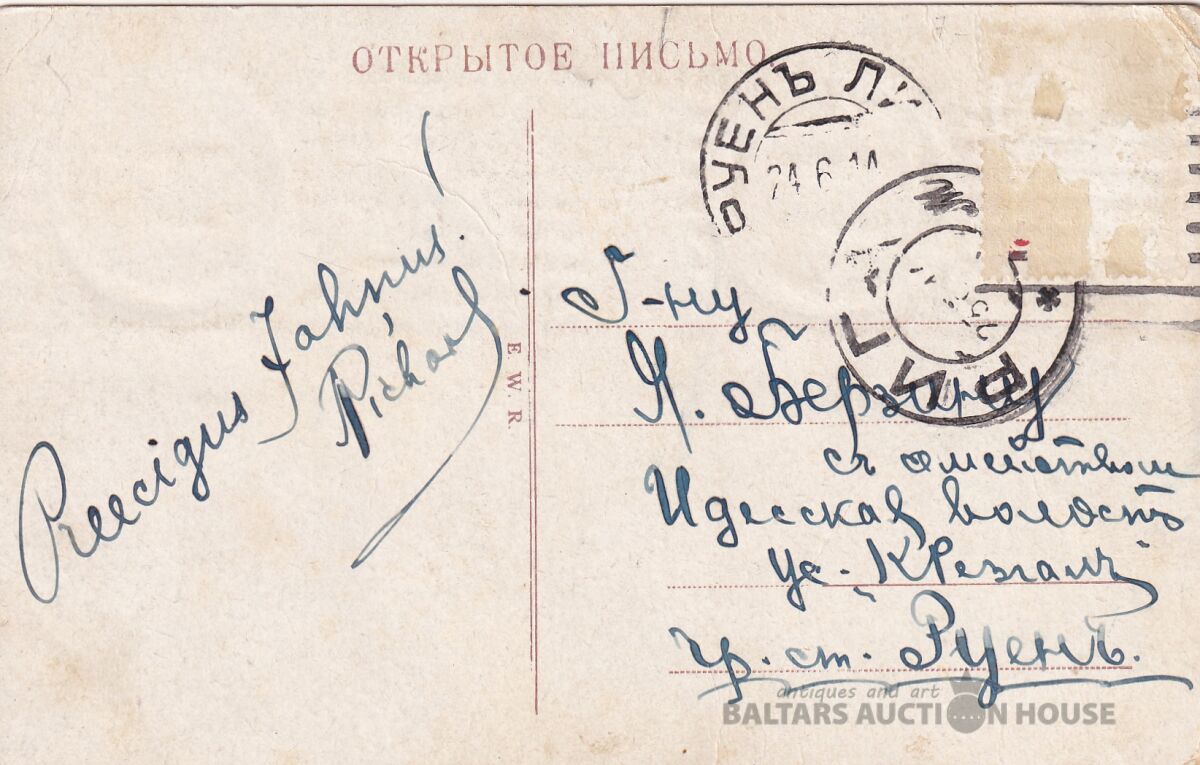 ОТКРЫТОЕ ПИСЬМО
РУЕНЪ
24.6.14
РИГА
Preecigus Jahnus!
Richard
E. W. R.
Г-ну
Я. Берзину
съ
Идесская волость
ус. „Крезгалъ"
чр. ст. Руенъ.
antiques and art
BALTARS AUCTION HOUSE